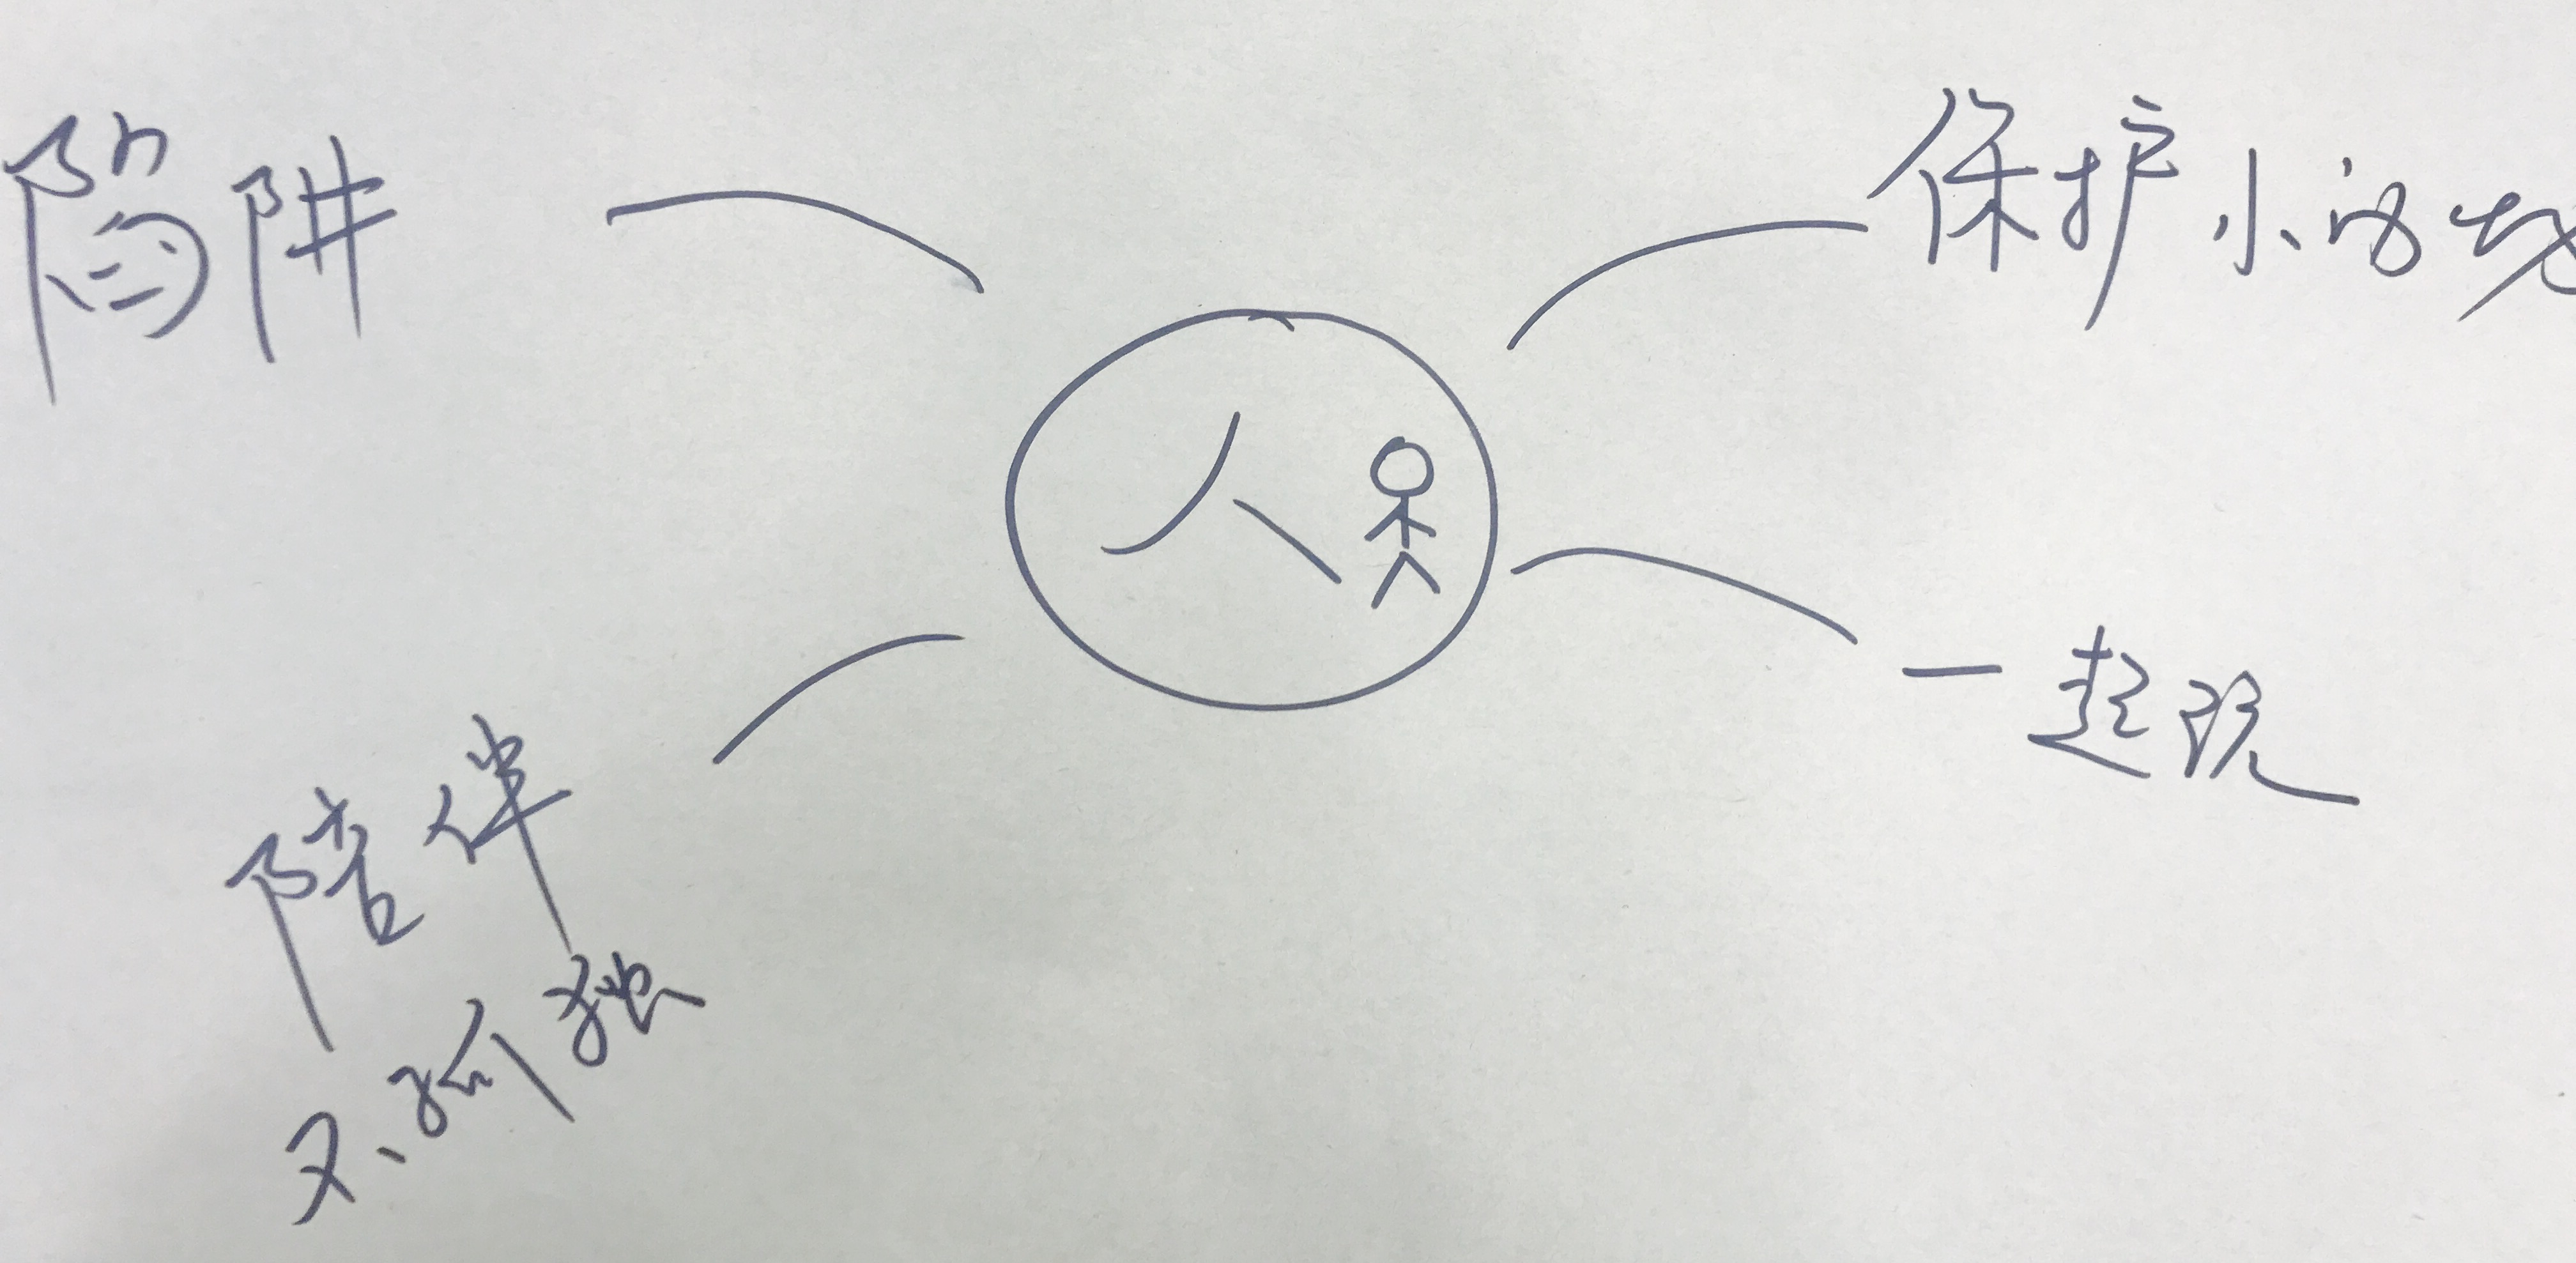 陷阱
保护小
人
一起玩
陪伴
不孤独